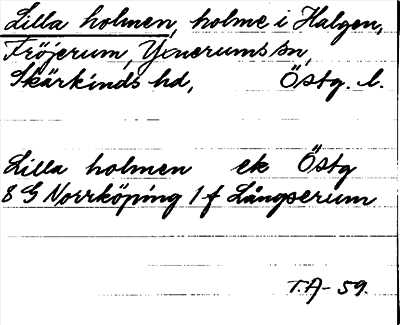 Lilla holmen, holme i Halgen,
Fröjerum, Yxnerums sn,
Skärkinds hd, Östg. l.
Lilla holmen ek Östg
8 G Norrköping 1 f Långserum
T.A- 59.